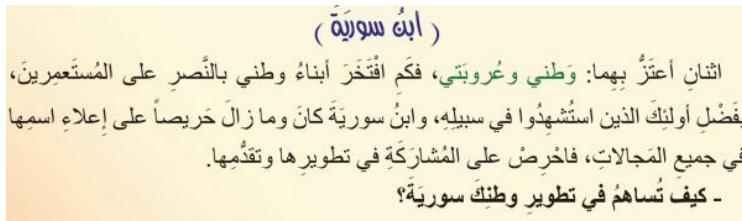 ( ابنُ سوريَة )
اثنانِ أعتَزُّ بِهِما: وَطني وعُروبَتي، فكَم افْتَخَرَ أبناءُ وطني بالنَّصرِ على المُستَعمِرينَ،
بِفَضْلِ أولئِكَ الذين استُشهِدُوا في سبيلِهِ، وابنُ سوريَةَ كانَ وما زالَ حَريصاً على إعلاءِ اسمِها
في جميعِ المَجالاتِ، فاحْرِصْ على المُشارَكَةِ في تطويرِها وتقدُّمِها.
- كيفَ تُساهمُ في تطويرِ وطنِكَ سوريَةَ؟